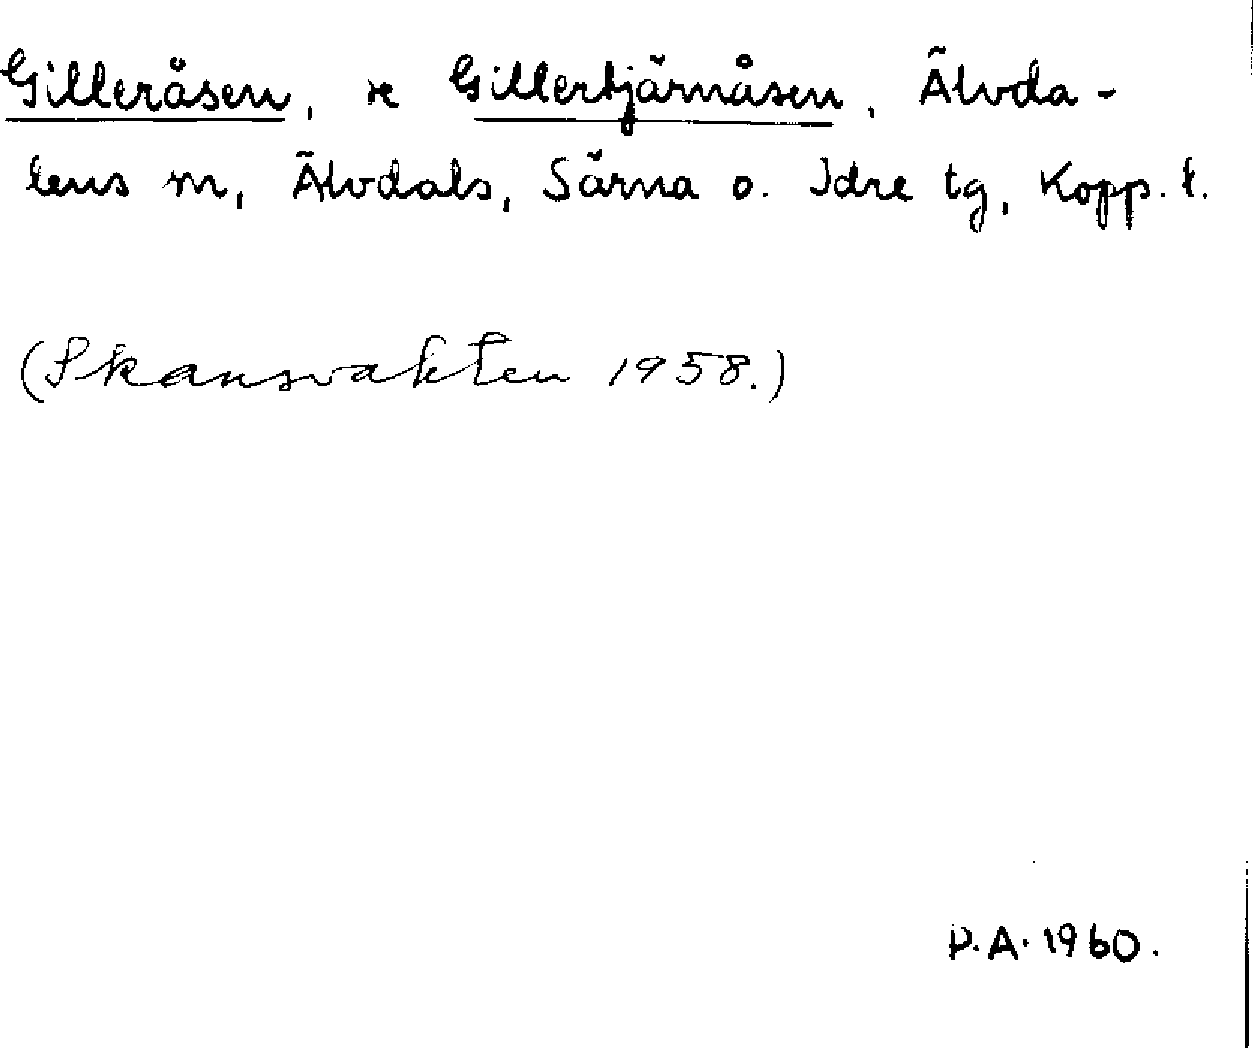 Gilleråsen, se Gillertjärnåsen, Älvda-
lens sn, Älvdals, Särna o. Idre tg, Kopp. l.
(Skansvakten 1958.)
D.A. 1960.